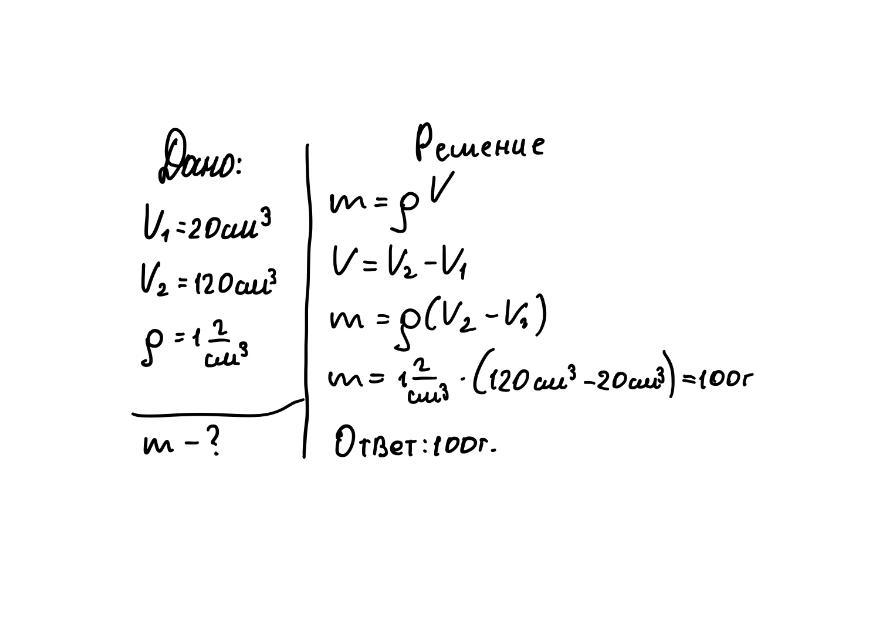 Дано:
V₁=20см³
V₂=120см³
ρ=1 г/см³
m-?
Решение
m=ρV
V=V₂-V₁
m=ρ(V₂-V₁)
m=1 г/см³·(120см³-20см³)=100г
Ответ:100г.